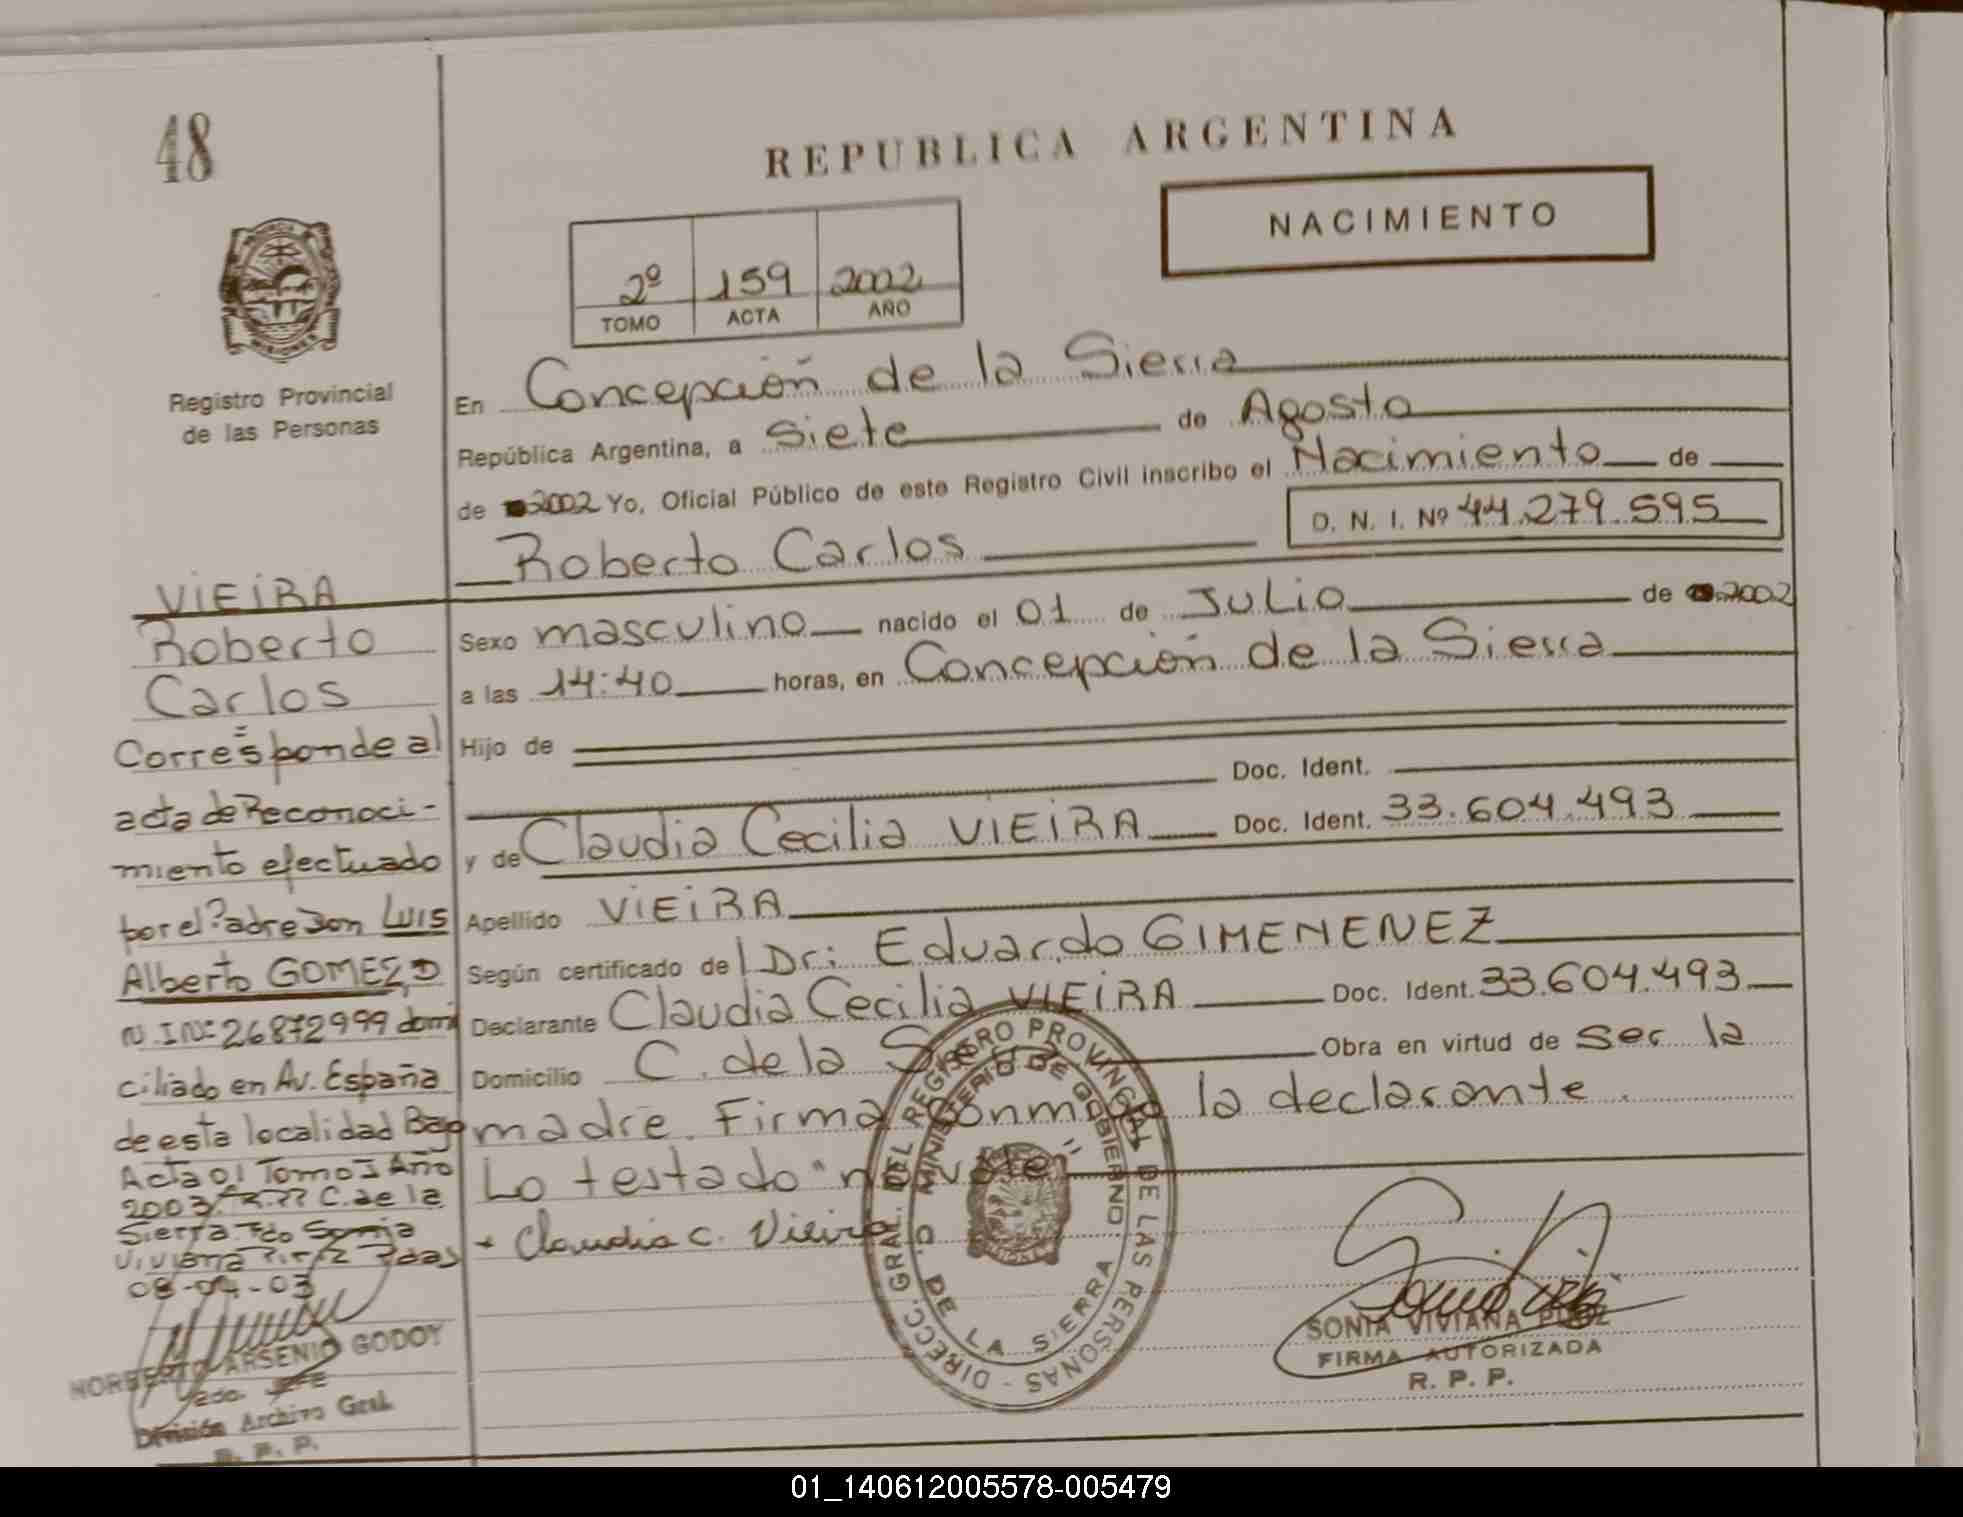 48
REPUBLICA ARGENTINA
NACIMIENTO
2º 159 2002
TOMO ACTA AÑO
Registro Provincial
de las Personas
En Concepción de la Sierra
República Argentina, a Siete de Agosto
de 2002 Yo, Oficial Público de este Registro Civil inscribo el Nacimiento de
D. N. I. Nº 44.279.595
Roberto Carlos
Sexo masculino nacido el 01 de Julio de 2002
a las 14:40 horas, en Concepción de la Sierra
Hijo de
Doc. Ident.
y de Claudia Cecilia VIEIRA Doc. Ident. 33.604.493
Apellido VIEIRA
Según certificado del Dr: Eduardo GIMENENEZ
Declarante Claudia Cecilia VIEIRA Doc. Ident. 33.604.493
Domicilio C. de la S Obra en virtud de ser la
madre. Firma conmigo la declarante.
Lo testado "no vale"
Claudia C. Vieira
VIEIRA
Roberto
Carlos
Corresponde al
acta de Reconoci-
miento efectuado
por el Padre Don LUIS
Alberto GOMEZ, D
N.I Nº 26872999 domi
ciliado en Av. España
de esta localidad Bajo
Acta 01 Tomo I Año
2003 C. de la
Sierra Fdo Sonia
Viviana Pdas
08-04-03
NORBERTO ARSENIO GODOY
2do. JEFE
División Archivo Gral.
R. P. P.
DIRECC. GRAL. DEL REGISTRO PROVINCIAL DE LAS PERSONAS
MINISTERIO DE GOBIERNO
C. DE LA SIERRA
SONIA VIVIANA
FIRMA AUTORIZADA
R. P. P.
01_140612005578-005479